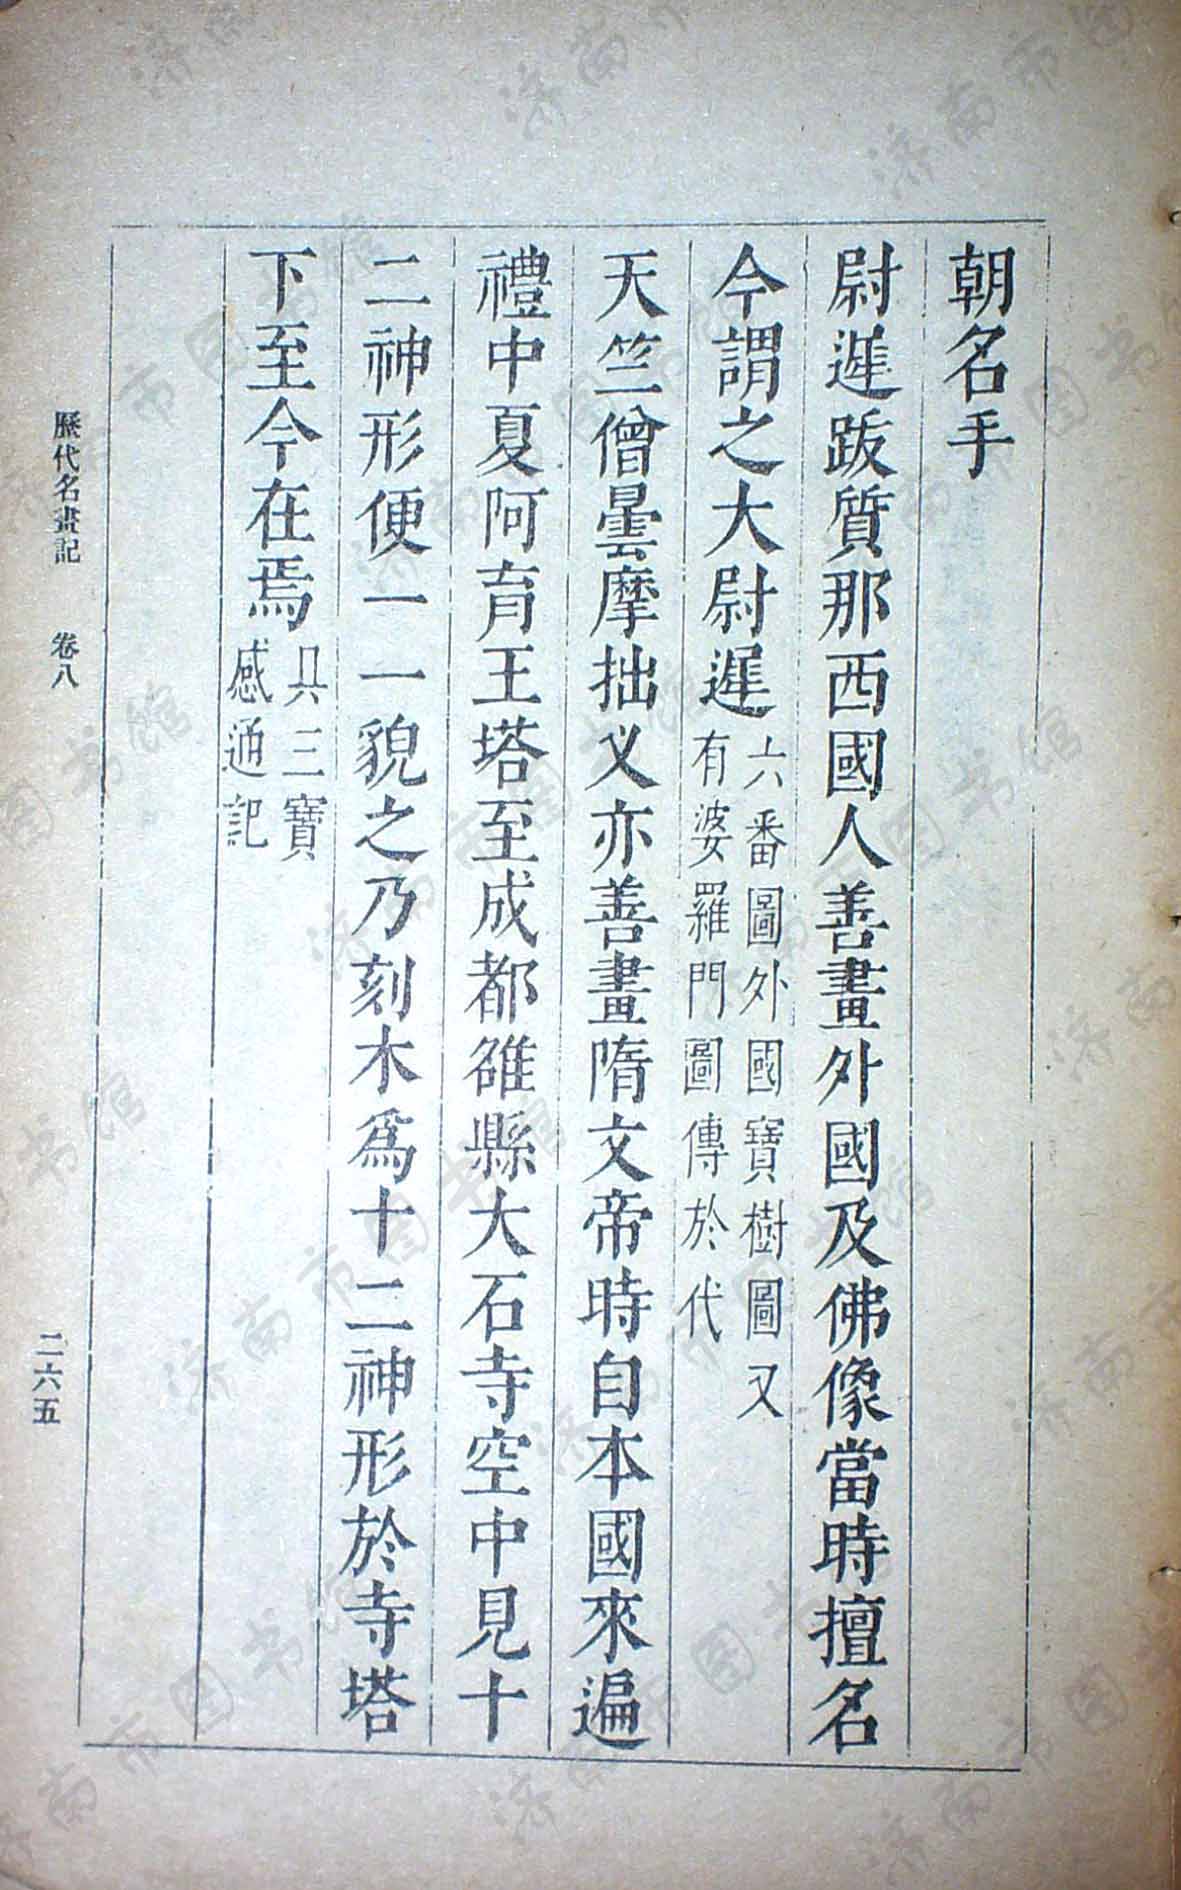 朝名手
尉遲跋質那西國人善畫外國及佛像當時擅名
今謂之大尉遲六番圖外國寶樹圖又
有婆羅門圖傳於代
天竺僧曇摩拙义亦善畫隋文帝時自本國來遍
禮中夏阿育王塔至成都雒縣大石寺空中見十
二神形便一一貌之乃刻木爲十二神形於寺塔
下至今在焉具三寶
感通記
歷代名畫記 卷八
二六五
济南市图书馆